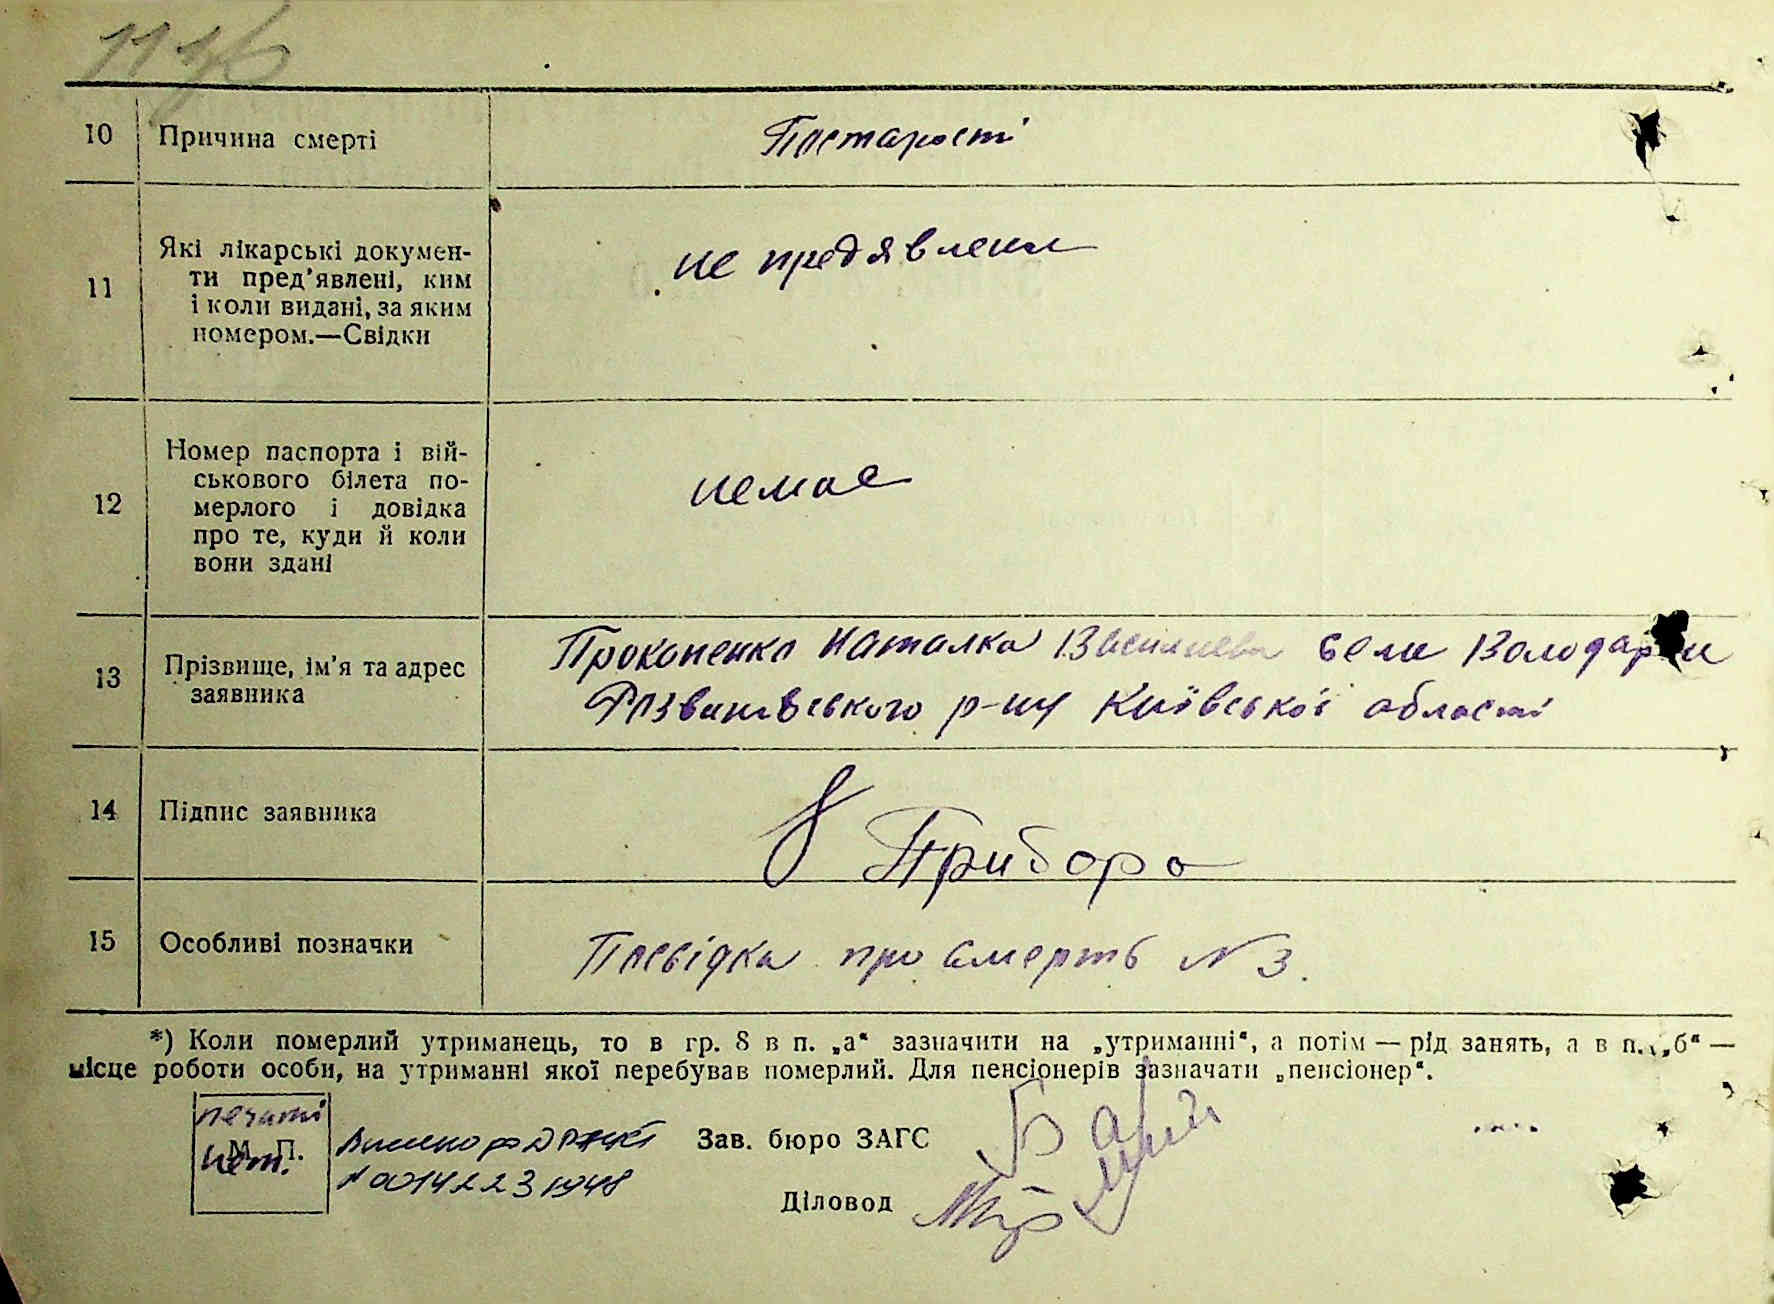 10 Причина смерті Постарості
11 Які лікарські докумен-
ти пред’явлені, ким
і коли видані, за яким
номером.—Свідки
не предявлени
12 Номер паспорта і вій-
ськового білета по-
мерлого і довідка
про те, куди й коли
вони здані
немає
13 Прізвище, ім’я та адрес
заявника
Прокопенко Наталка Василиева село Володарки
Розважівського р-ну Київської області
14 Підпис заявника
15 Особливі позначки Посвідка про смерть № 3.
*) Коли померлий утриманець, то в гр. 8 в п. „а“ зазначити на „утриманні“, а потім — рід занять, а в п. „б“ —
місце роботи особи, на утриманні якої перебував померлий. Для пенсіонерів зазначати „пенсіонер“.
печати
нет.
М. П.
Зав. бюро ЗАГС
Діловод